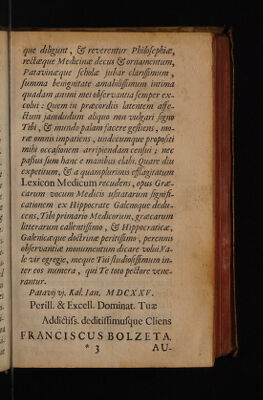 que diligunt, & reverentur Philosophiæ,
rectæque Medicinæ decus & ornamentum,
Patavinæque scholæ jubar clarissimum,
summa benignitate amabilissimum intima
quadam animi mei observantia semper ex-
colui: Quem in præcordiis latentem affe-
ctum jamdudum aliquo non vulgari signo
Tibi, & mundo palam facere gestiens, mo-
ræ omnis impatiens, undecumque propositi
mihi occasionem arripiendam censui; nec
passus sum hanc e manibus elabi. Quare diu
expetitum, & a quamplurimis efflagitatum
Lexicon Medicum recudens, opus Græ-
carum vocum Medicis usitatarum signifi-
cationem ex Hippocrate Galenoque dedu-
cens, Tibi primario Medicorum, græcarum
litterarum callentissimo, & Hippocraticæ,
Galenicæque doctrinæ peritissimo, perennis
observantiæ monumentum dicare volui. Va-
le vir egregie, meque Tui studiosissimum in-
ter eos numera, qui Te toto pectore vene-
rantur.
Patavij vj. Kal. Ian. MDCXXV.
Perill. & Excell. Dominat. Tuæ
Addictiss. deditissimusque Cliens
FRANCISCUS BOLZETA.
* 3 AU-